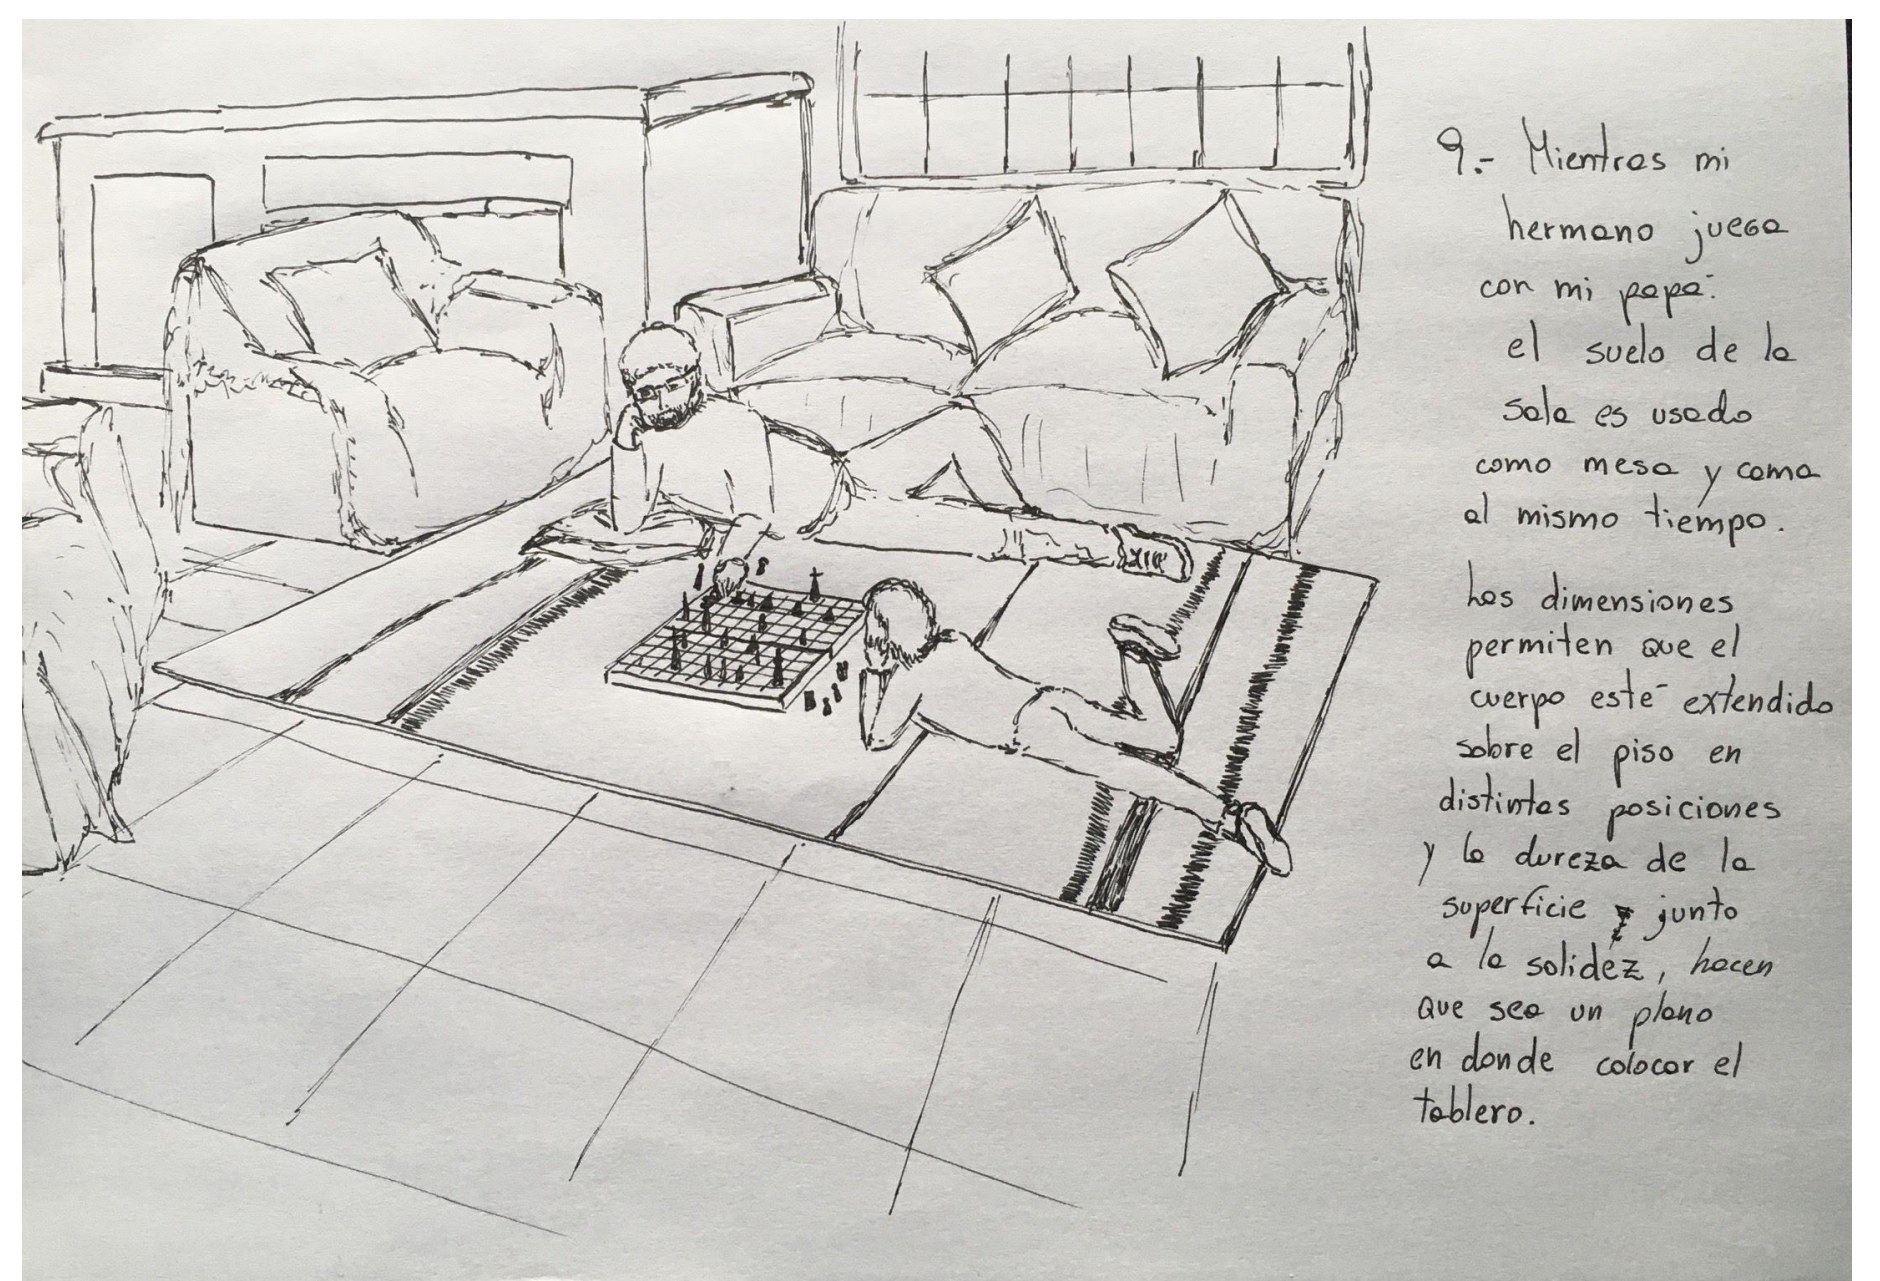 9.- Mientras mi
hermano juega
con mi papá:
el suelo de la
sala es usado
como mesa y cama
al mismo tiempo.
Las dimensiones
permiten que el
cuerpo esté extendido
sobre el piso en
distintas posiciones
y la dureza de la
superficie, junto
a la solidez, hacen
que sea un plano
en donde colocar el
tablero.